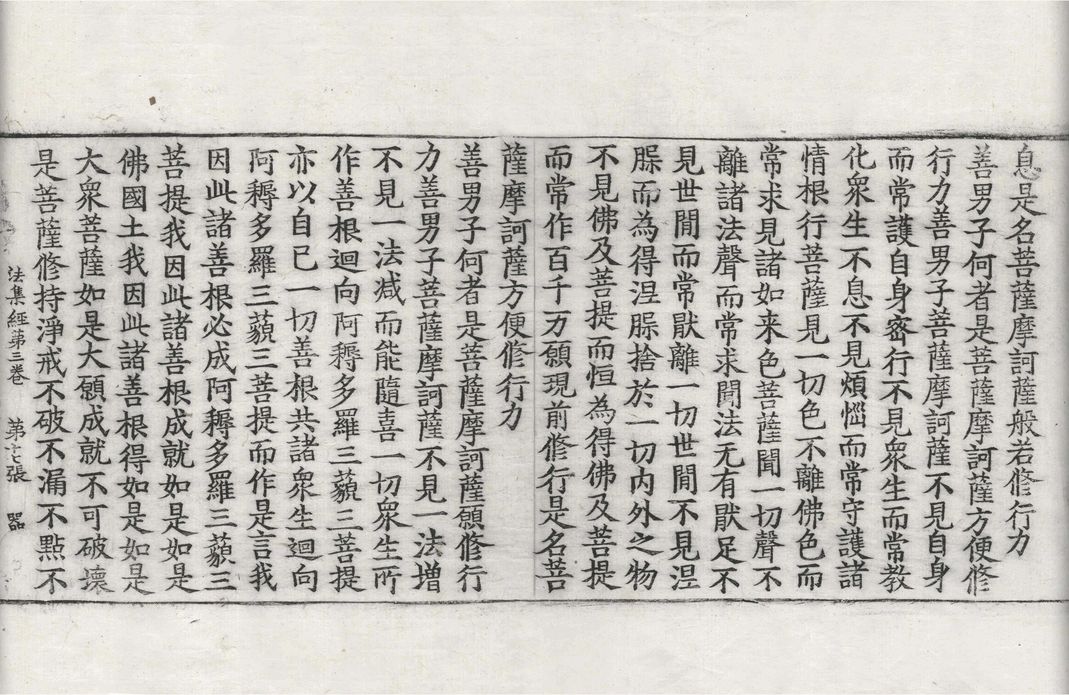 息是名菩薩摩訶薩般若修行力
善男子何者是菩薩摩訶薩方便修
行力善男子菩薩摩訶薩不見自身
而常護自身密行不見衆生而常教
化衆生不息不見煩惱而常守護諸
情根行菩薩見一切色不離佛色而
常求見諸如来色菩薩聞一切聲不
離諸法聲而常求聞法无有猒足不
見世間而常猒離一切世間不見涅
槃而為得涅槃捨於一切内外之物
不見佛及菩提而恒為得佛及菩提
而常作百千万願現前修行是名菩
薩摩訶薩方便修行力
善男子何者是菩薩摩訶薩願修行
力善男子菩薩摩訶薩不見一法增
不見一法减而能隨喜一切衆生所
作善根迴向阿耨多羅三藐三菩提
亦以自己一切善根共諸衆生迴向
阿耨多羅三藐三菩提而作是言我
因此諸善根必成阿耨多羅三藐三
菩提我因此諸善根成就如是如是
佛國土我因此諸善根得如是如是
大衆菩薩如是大願成就不可破壞
是菩薩修持淨戒不破不漏不點不
法集經第三卷 第 張 器